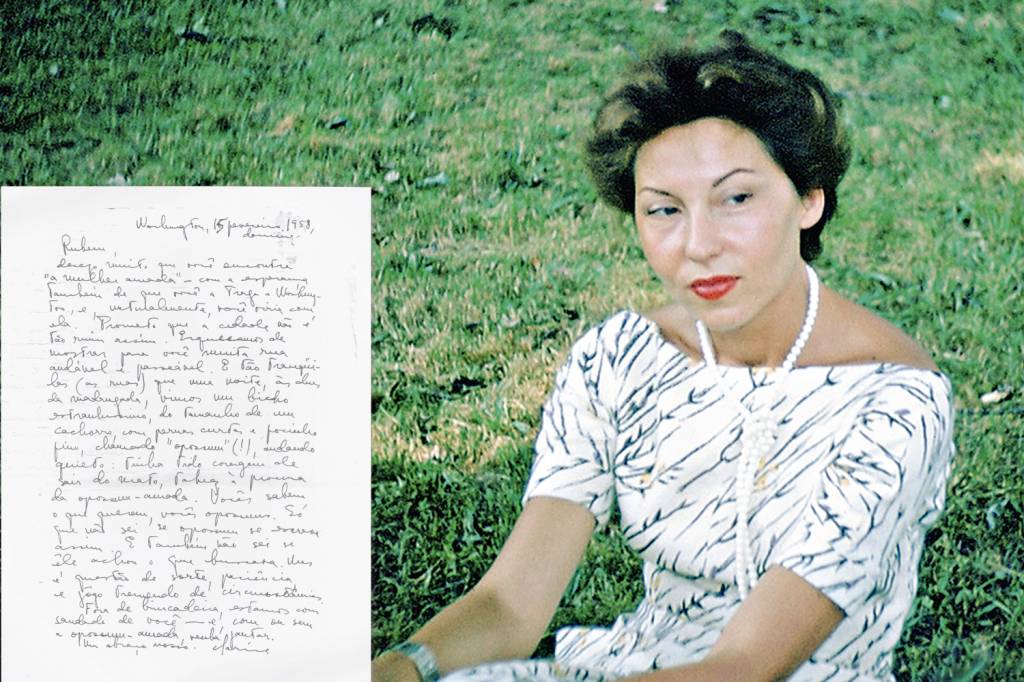 Washington, 15 fevereiro, 1958,
domingo
Rubem,
desejo muito que você encontre
"a mulher amada" – com a esperança
também de que você a traga a Washing-
ton, e, naturalmente, você viria com
ela. Prometo que a cidade não é
tão ruim assim. Esquecemos de
mostrar para você muita rua
andável e passeável. E tão tranqui-
las (as ruas) que uma noite, às duas
da madrugada, vimos um bicho
estranhíssimo, do tamanho de um
cachorro, com pernas curtas e focinho
fino, chamado "opossum" (!), andando
quieto: tinha tido coragem de
sair do mato, talvez à procura
da opossum-amada. Vocês sabem
o que querem, vocês opossums. Só
que não sei se opossum se escreve
assim. E também não sei se
êle achou o que buscava. Mas
é questão de sorte, paciência
e jogo tremendo de circunstâncias.
Fora de brincadeira, estamos com
saudade de você – e, com ou sem
a opossum-amada, venha jantar.
Um abraço nosso. Clarice